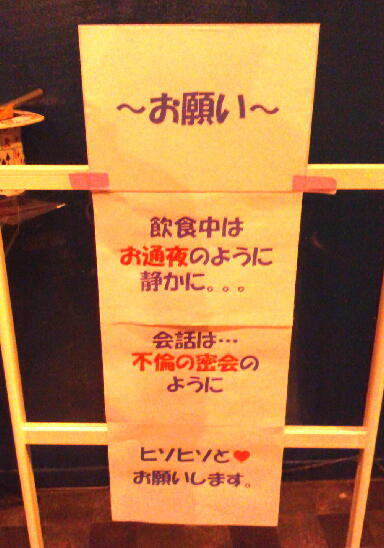 ～お願い～
飲食中は
お通夜のように
静かに。。。
会話は…
不倫の密会の
ように
ヒソヒソと❤
お願いします。